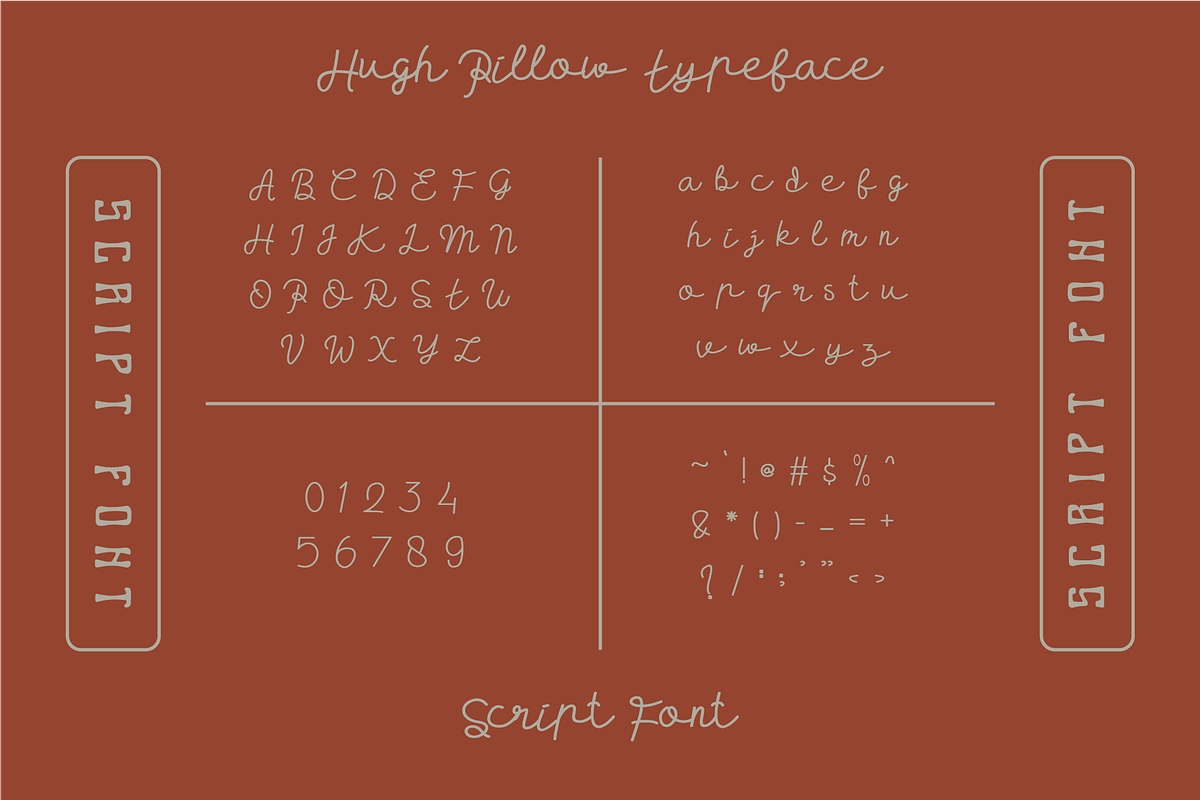 Hugh Pillow typeface
SCRIPT FONT
A B C D E F G
H I J K L M N
O P Q R S t U
V W X Y Z
a b c d e f g
h i j k l m n
o p q r s t u
v w x y z
0 1 2 3 4
5 6 7 8 9
~ ` ! @ # $ % ^
& * ( ) - _ = +
? / : ; ’ ” < >
SCRIPT FONT
Script Font